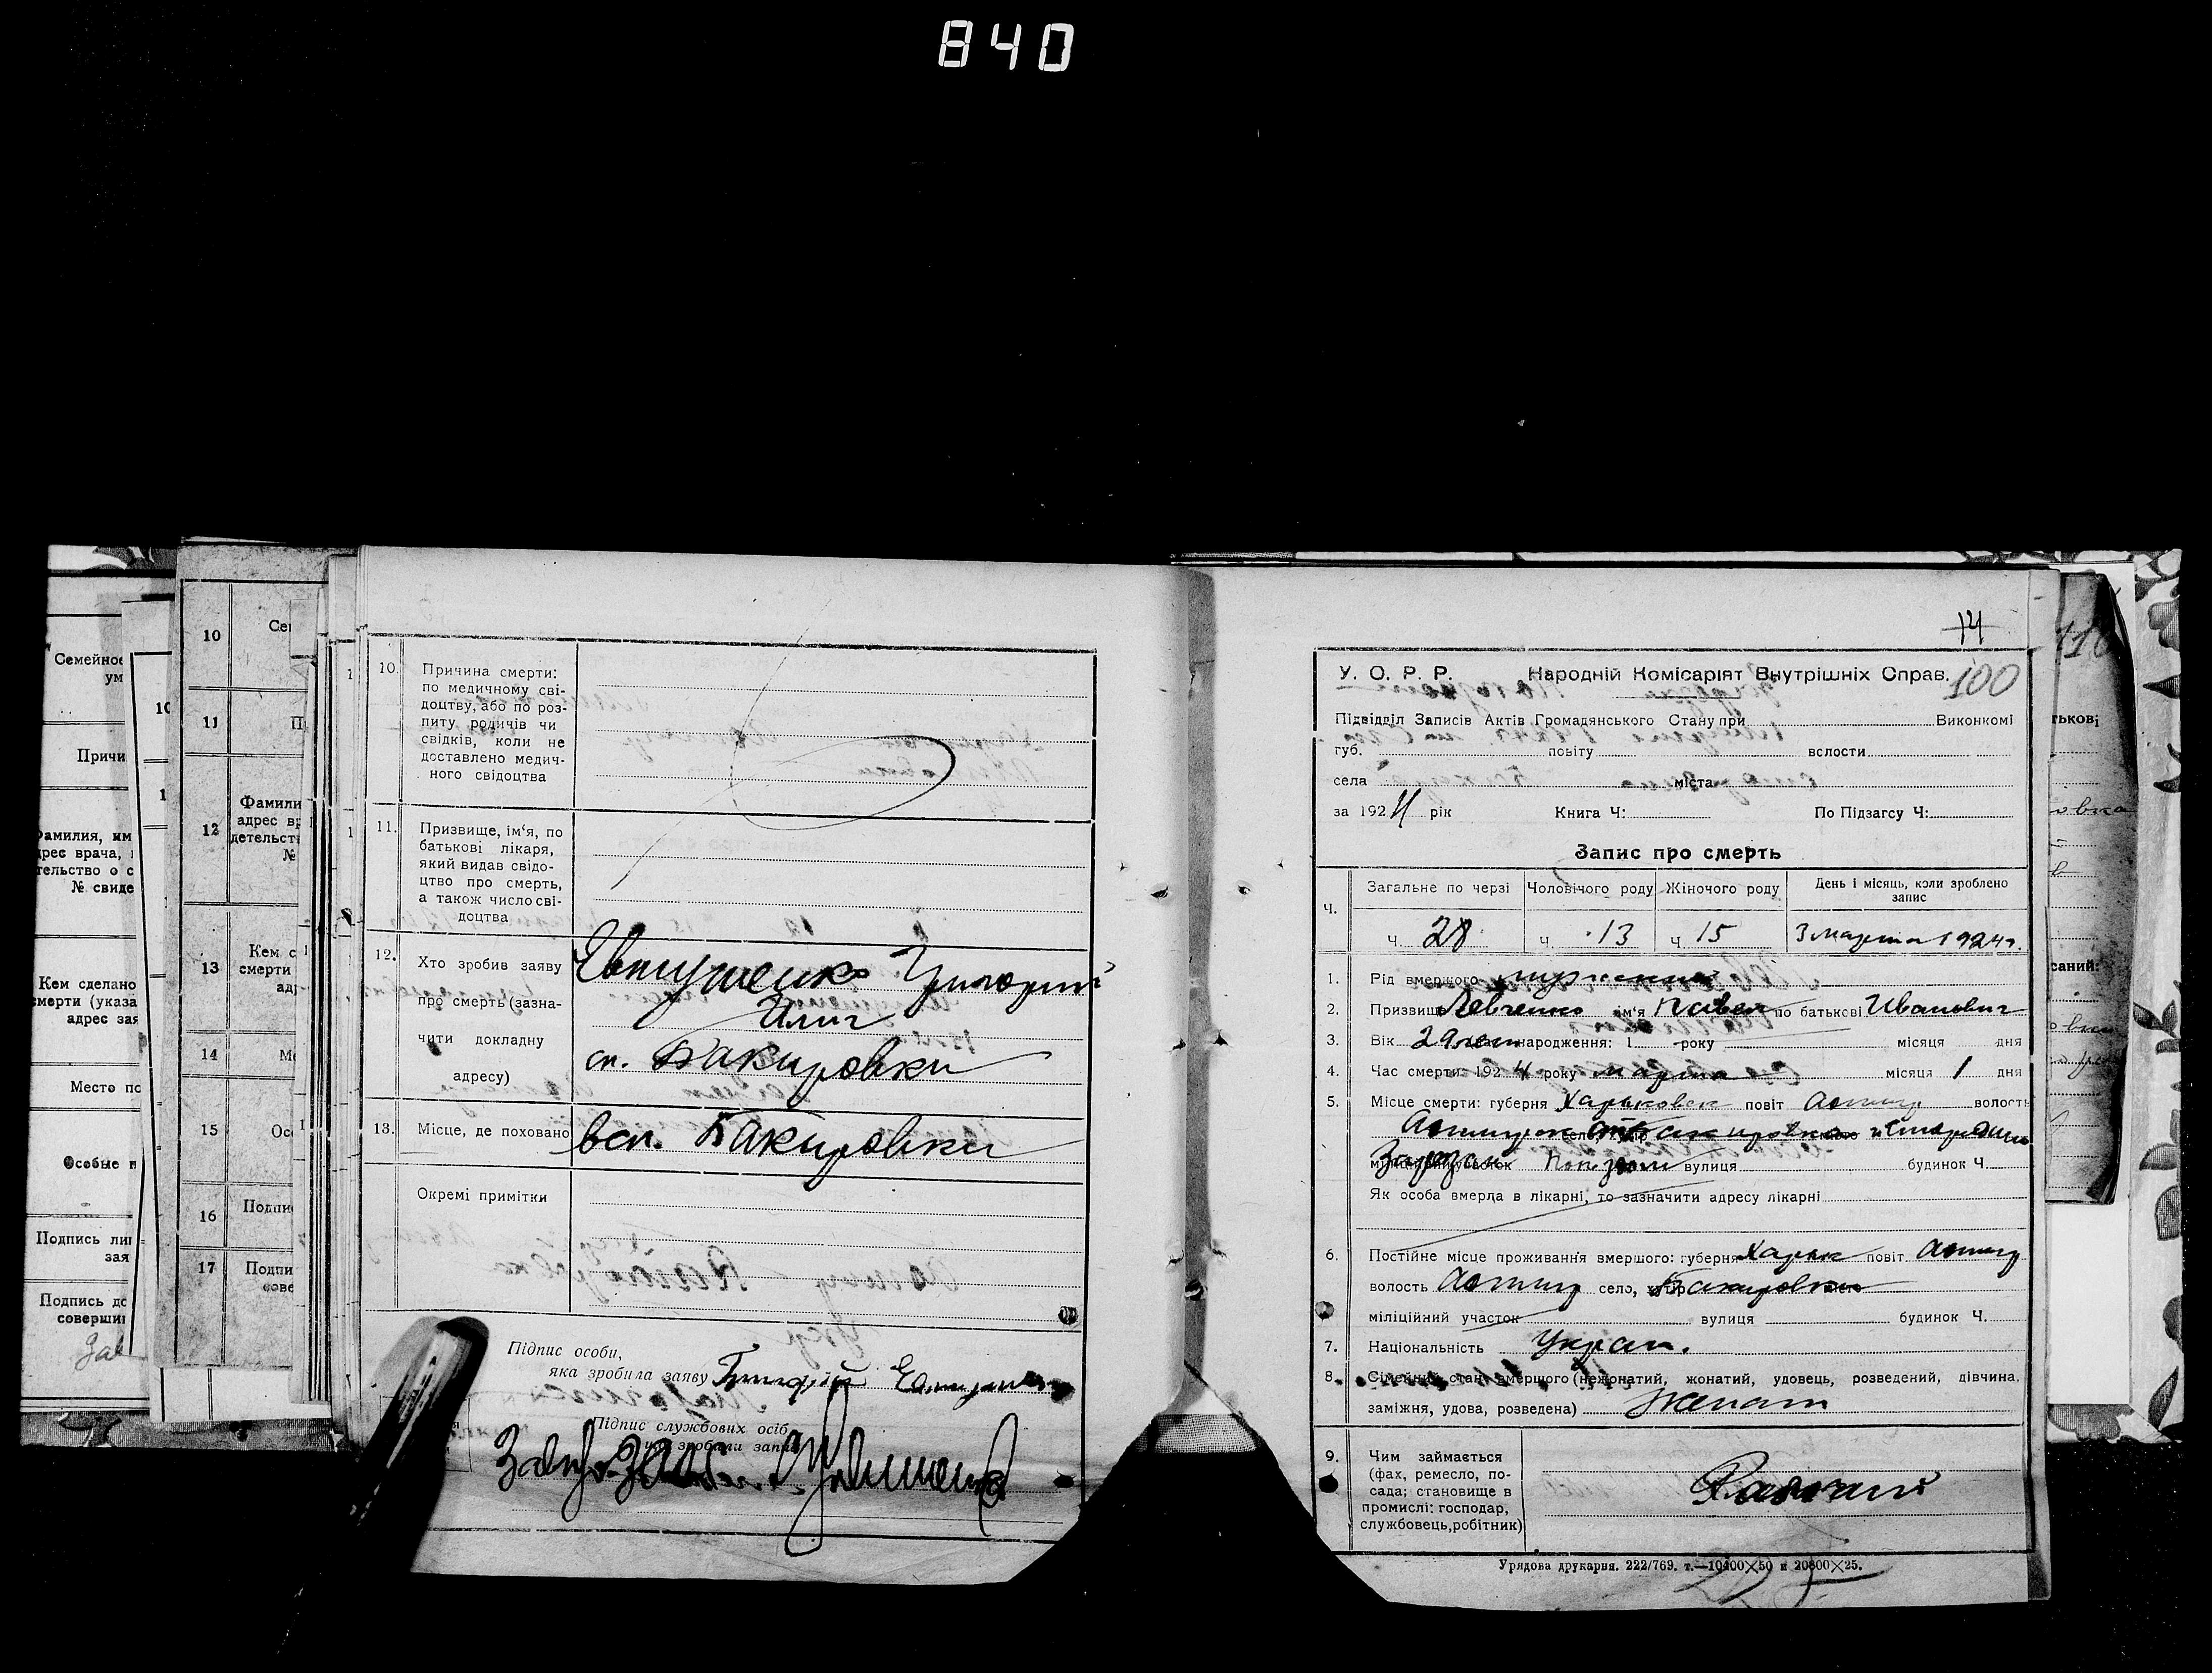 840
10
Сем
11
П
12
Фамили
адрес вр
детельств
№
13
Кем с
смерти
адр
14
М
15
Осо
16
Подпи
17
Подпи
сове
Семейное
ум
Причи
Фамилия, им
адрес врача,
тельство о с
№ свиде
Кем сделано
смерти (указа
адрес зая
Место по
Особые п
Подпись ли
зая
Подпись до
соверши
Зав
10. Причина смерти:
по медичному сві-
доцтву, або по роз-
питу родичів чи
свідків, коли не
доставлено медич-
ного свідоцтва
11. Призвище, ім‘я, по
батькові лікаря,
який видав свідо-
цтво про смерть,
а також число сві-
доцтва
12. Хто зробив заяву Евтушенко Григорий
про смерть (зазна-
Илич
чити докладну
сл. Бакировки
адресу)
13. Місце, де поховано всл. Бакировки
Окремі примітки
Підпис особи,
яка зробила заяву Григорій Евтушенко
Підпис службових осіб,
що зробили запис
14
100
У. О. Р. Р. Народній Комісаріят Внутрішніх Справ.
Підвідділ Записів Актів Громадянського Стану при Виконкомі
губ. повіту волости
села міста
за 1924 рік Книга Ч: По Підзагсу Ч:
Запис про смерть
Ч. Загальне по черзі Чоловічого роду Жіночого роду День і місяць, коли зроблено
запис
Ч. 28 Ч. 13 Ч. 15 3 марта 1924 г.
1. Рід вмершого мужский
2. Призвище Левченко ім‘я Павел по батькові Иванович
3. Вік 29 лет народження: 1 року місяця дня
4. Час смерти: 1924 року марта місяця 1 дня
5. Місце смерти: губерня Харьковск повіт Ахтыр волость
Ахтырск Бакировка
вулиця будинок Ч.
Як особа вмерла в лікарні, то зазначити адресу лікарні
6. Постійне місце проживання вмершого: губерня Харьк повіт Ахтыр
волость Ахтыр село, хутір Бакировки
міліційний участок вулиця будинок Ч.
7. Національність Украи.
8. Сімейний стан вмершого (нежонатий, жонатий, удовець, розведений, дівчина,
заміжня, удова, розведена) женат
9. Чим займається
(фах, ремесло, по-
сада; становище в
промислі: господар,
службовець, робітник)
Урядова друкарня. 222/769. т.—10400×50 и 20800×25.
110